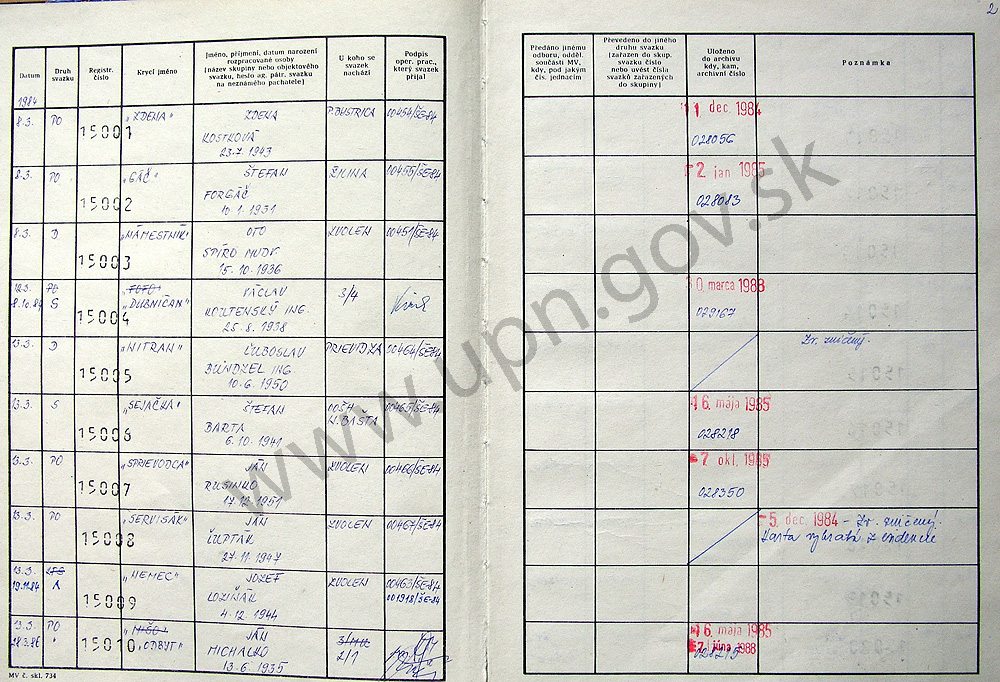 2
Datum
Druh
svazku
Registr.
číslo
Krycí jméno
Jméno, příjmení, datum narození
rozpracované osoby
(název skupiny nebo objektového
svazku, heslo ag. pátr. svazku
na neznámého pachatele)
U koho se
svazek
nachází
Podpis
oper. prac.,
který svazek
přijal
Předáno jinému
odboru, odděl.
součásti MV,
kdy, pod jakým
čís. jednacím
Převedeno do jiného
druhu svazku
(zařazen do skup.
svazku číslo
nebo uvést čísla
svazků zařazených
do skupiny)
Uloženo
do archivu
kdy, kam,
archivní číslo
Poznámka
1984
8.3. PO 15001 „ZDENA" ZDENA P. BYSTRICA 00454/ŠE-84 11 dec. 1984
KOSTKOVÁ 028056
23.7.1943
8.3. PO 15002 „GÁČ" ŠTEFAN ŽILINA 00455/ŠE-84 2 jan 1985
FORGÁČ 028083
10.1.1931
8.3. D 15003 „NÁMESTNÍK" OTO ZVOLEN 00451/ŠE-84
SPÍRO MUDR.
15.10.1936
PO VÁCLAV 3/4 10 marca 1988
8.10.84 S 15004 „DUBNIČAN" ING. 029167
25.8.1938
13.3. D 15005 „NITRAN" ĽUBOSLAV PRIEVIDZA 00464/ŠE-84 Zv. zničený.
BUNDZEL ING.
10.6.1950
13.3. S 15006 „SEJAČKA" ŠTEFAN 00465/ŠE-84 16. mája 1985
BARTA 028218
6.10.1941
13.3. PO 15007 „SPRIEVODCA" JÁN ZVOLEN 00466/ŠE-84 7. okt. 1985
RUSINKO 028350
17.12.1951
13.3. PO 15008 „SERVISÁK" JÁN ZVOLEN 00467/ŠE-84 -5. dec. 1984 - Zv. zničený.
ĽUPTÁK Karta vybratá z evidencie
27.11.1947
13.3. 15009 „NEMEC" JOZEF ZVOLEN 00463/ŠE-84
19.11.84 A 001918/ŠE-84
4.12.1944
13.3. PO 15010 „MIŠO" JÁN 16. mája 1985
28.3.86 " „ODBYT" MICHALKO 2/1 júna 1988
13.6.1935 028215
MV č. skl. 734
www.upn.gov.sk